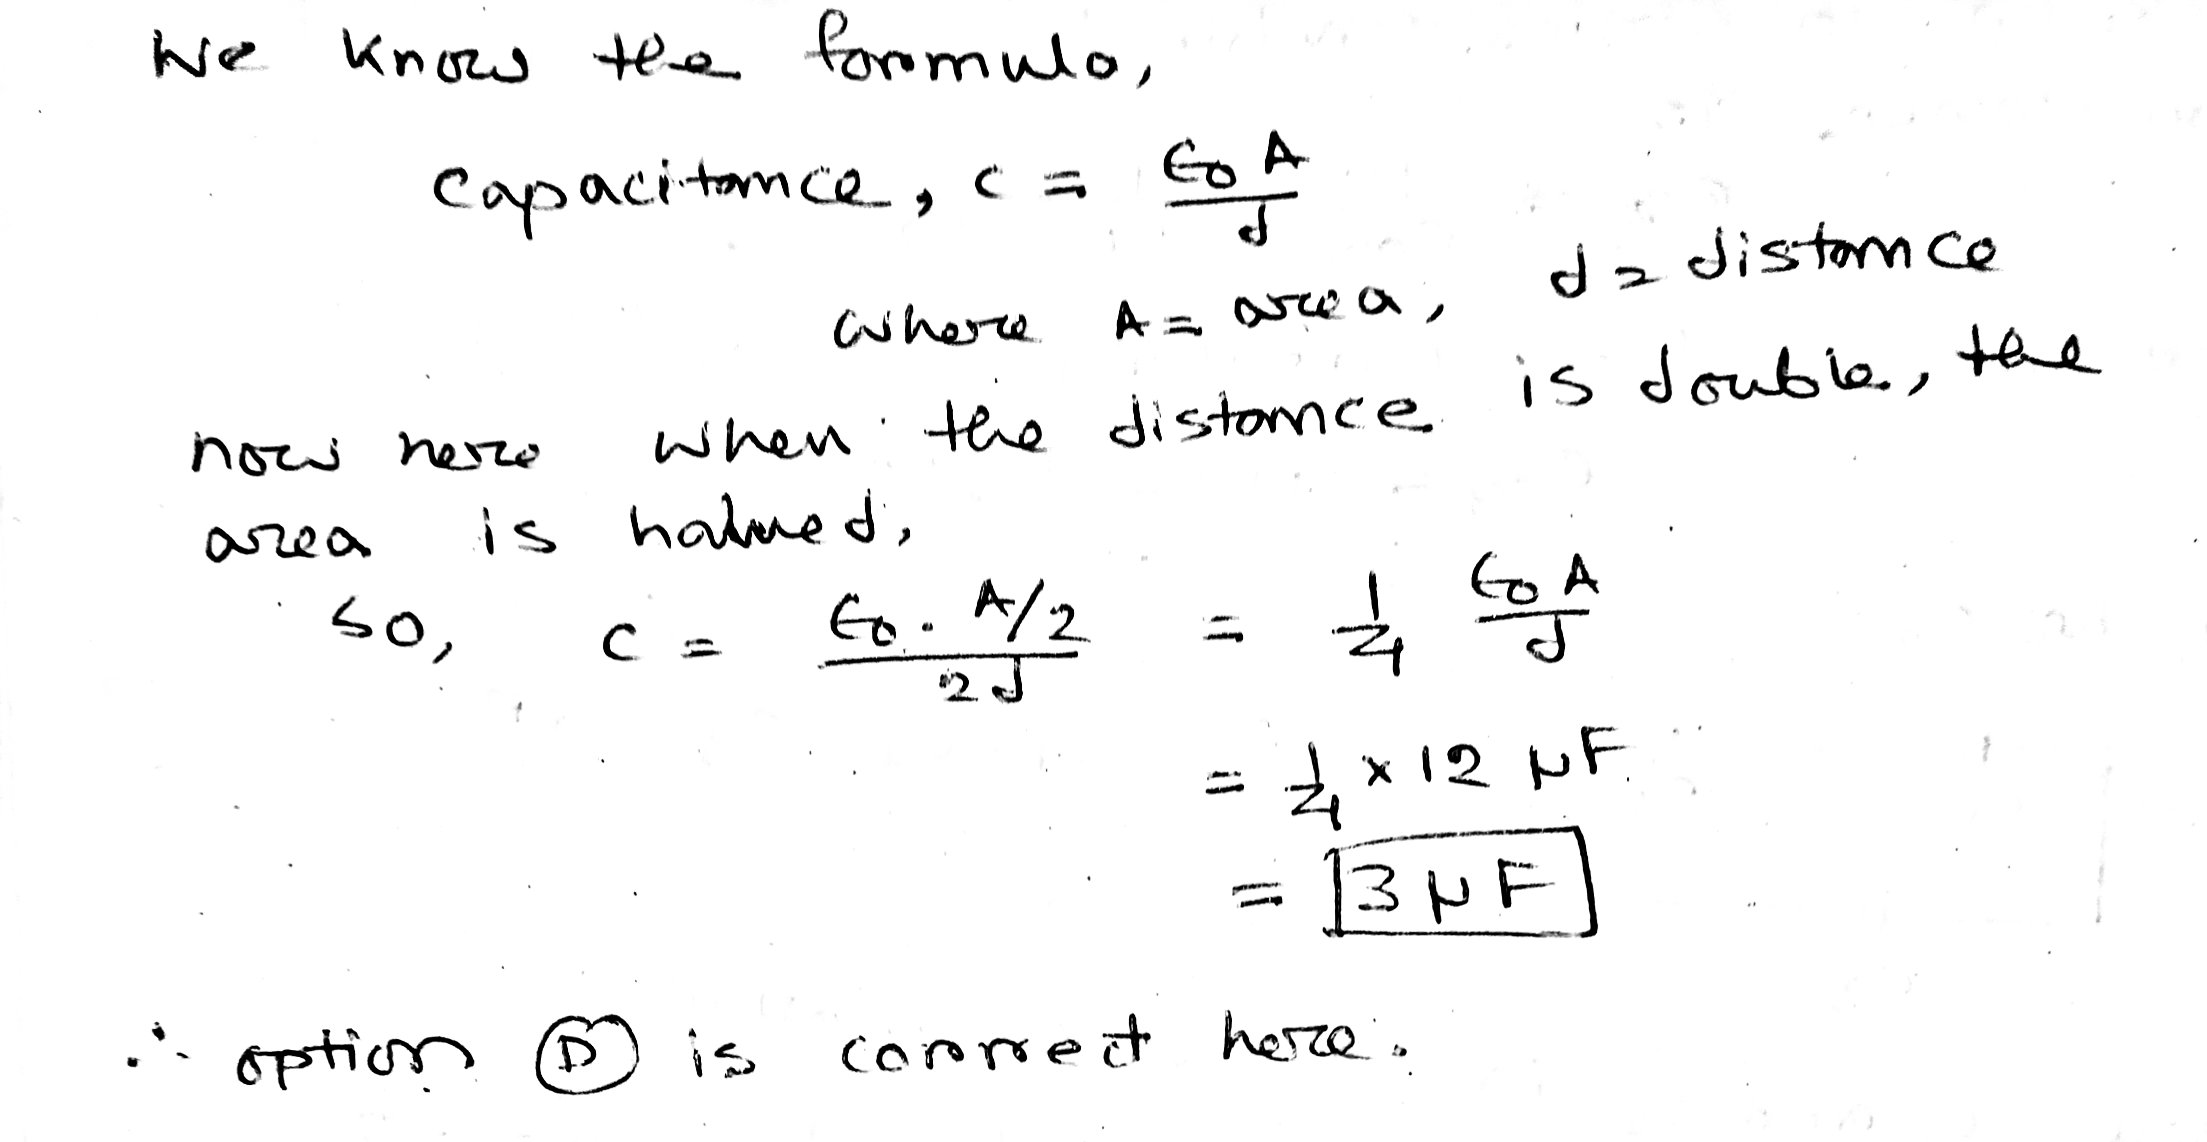 We know the formula,
Capacitance, C = ϵ₀A/d
where A = area, d = distance
now here when the distance is double, the
area is halved,
So, C = ϵ₀.A/2 / 2d = 1/4 ϵ₀A/d
= 1/4 × 12 μF
= 3 μF
∴ option D is correct here.